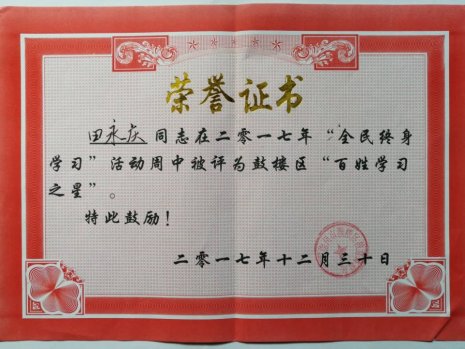 荣誉证书
田永庆同志在二零一七年“全民终身
学习”活动周中被评为鼓楼区“百姓学习
之星”。
特此鼓励！
二零一七年十二月三十日